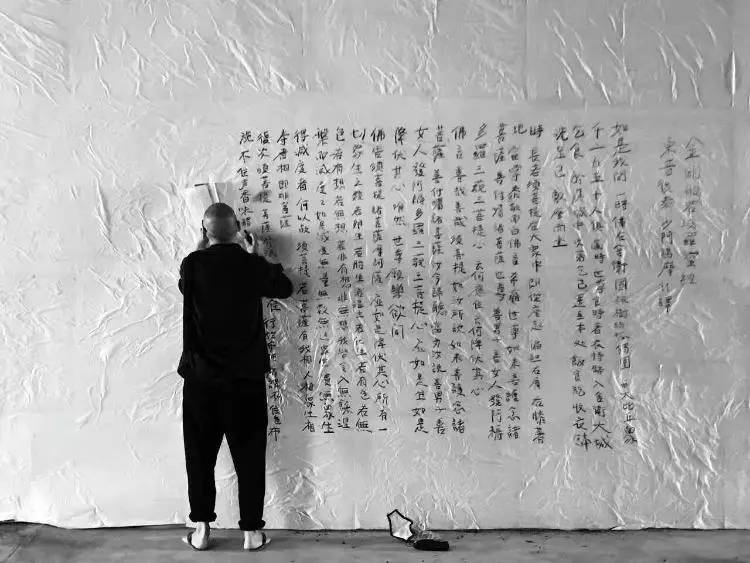 金剛般若波羅蜜經
東晉後秦 沙門鳩摩什譯
如是我聞 一時佛在舍衛國祇樹給孤獨園 大比丘眾
千二百五十人俱 爾時世尊食時著衣持鉢入舍衛大城
乞食 於其城中次第乞已還至本處 飯食訖收衣鉢
洗足已 敷座而坐
時 長老須菩提在大眾中 即從座起 偏袒右肩 右膝著
地 合掌恭敬而白佛言 希有世尊 如來善護念諸
菩薩 善付囑諸菩薩 世尊 善男子善女人發阿耨
多羅三藐三菩提心 云何應住 云何降伏其心
佛言 善哉善哉 須菩提 如汝所說 如來善護念諸
菩薩 善付囑諸菩薩 汝今諦聽 當為汝說 善男子善
女人發阿耨多羅三藐三菩提心 應如是住 如是
降伏其心 唯然 世尊 願樂欲聞
佛告須菩提 諸菩薩摩訶薩 應如是降伏其心 所有一
切眾生之類 若卵生若胎生若濕生若化生 若有色 若無
色 若有想 若無想 若非有想 非無想 我皆令入無餘涅
槃而滅度之 如是滅度無量無數無邊眾生 實無眾生
得滅度者 何以故 須菩提 若菩薩有我相人相眾生相
壽者相 即非菩薩
復次須菩提 菩薩 住 行於布施 所謂不住色布
施 不住聲香味觸